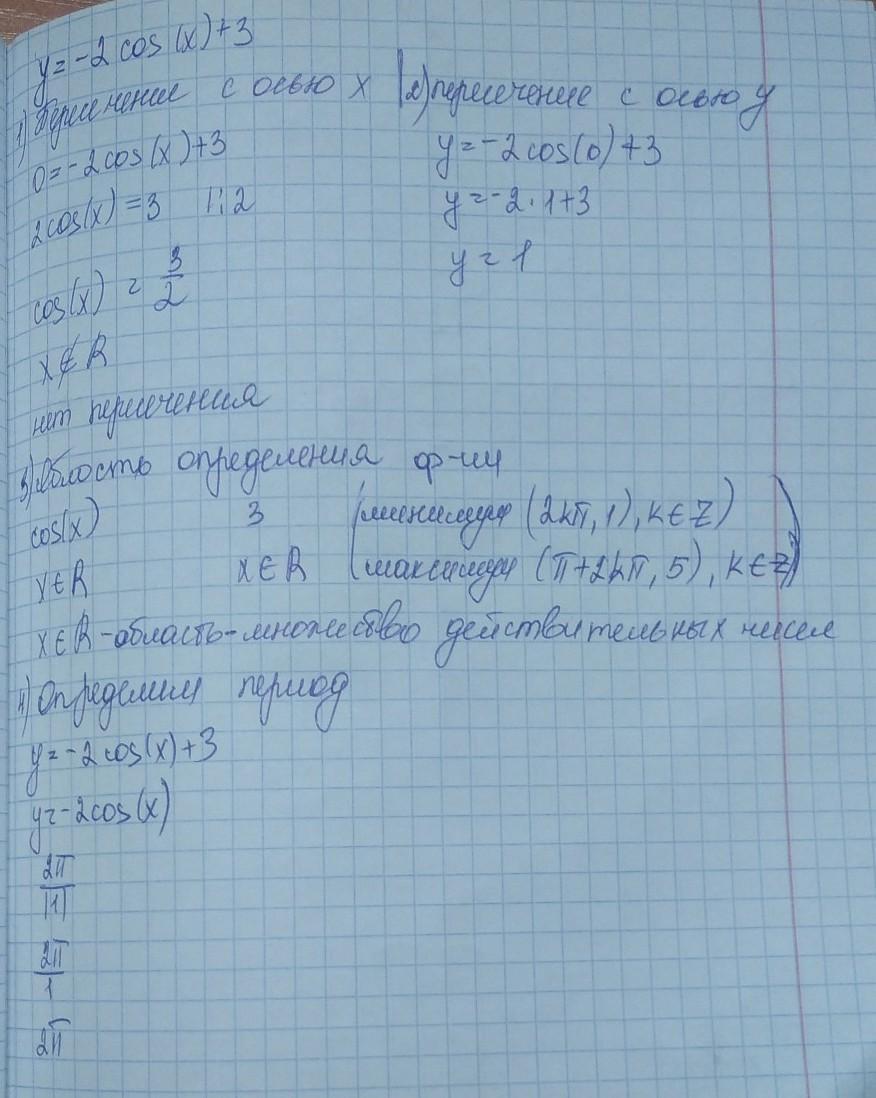 y=-2 cos (x)+3
1) Пересечение с осью x
0=-2cos(x)+3
2cos(x)=3 |:2
cos(x) = 3/2
x∉R
нет пересечения
2) пересечение с осью y
y=-2cos(0)+3
y=-2·1+3
y=1
3) Область определения ф-ии
cos(x) 3 (минимум (2kπ, 1), k∈Z)
x∈R x∈R (максимум (π+2kπ, 5), k∈Z)
x∈R-область-множество действительных чисел
4) Определим период
y=-2cos(x)+3
y=-2cos(x)
2π/|1|
2π/1
2π